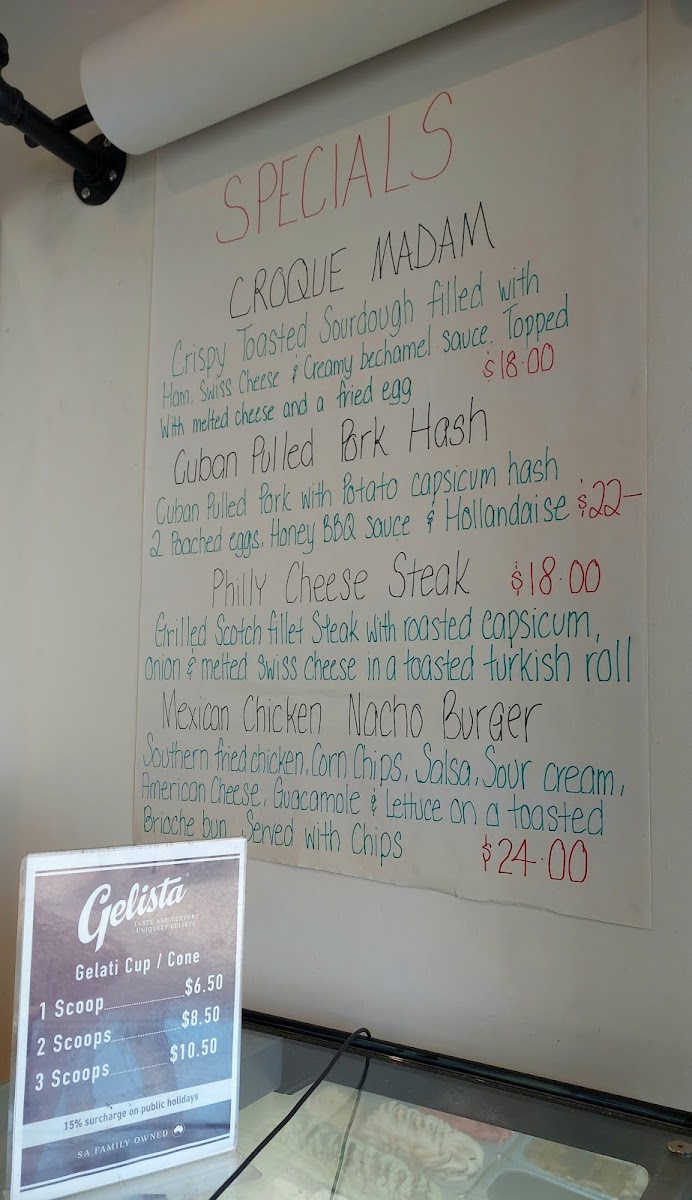 SPECIALS
CROQUE MADAM
Crispy Toasted Sourdough filled with
Ham, Swiss Cheese & Creamy bechamel sauce. Topped
With melted cheese and a fried egg $18.00
Cuban Pulled Pork Hash
Cuban Pulled Pork with Potato capsicum hash
2 Poached eggs, Honey BBQ sauce & Hollandaise $22-
Philly Cheese Steak $18.00
Grilled Scotch fillet Steak with roasted capsicum,
onion & melted swiss cheese in a toasted turkish roll
Mexican Chicken Nacho Burger
Southern fried chicken, Corn Chips, Salsa, Sour cream,
American Cheese, Guacamole & Lettuce on a toasted
Brioche bun. Served with Chips $24.00
Gelista
TASTE AND TEXTURE
UNIQUELY GELISTA
Gelati Cup / Cone
1 Scoop..........$6.50
2 Scoops..........$8.50
3 Scoops..........$10.50
15% surcharge on public holidays
SA FAMILY OWNED